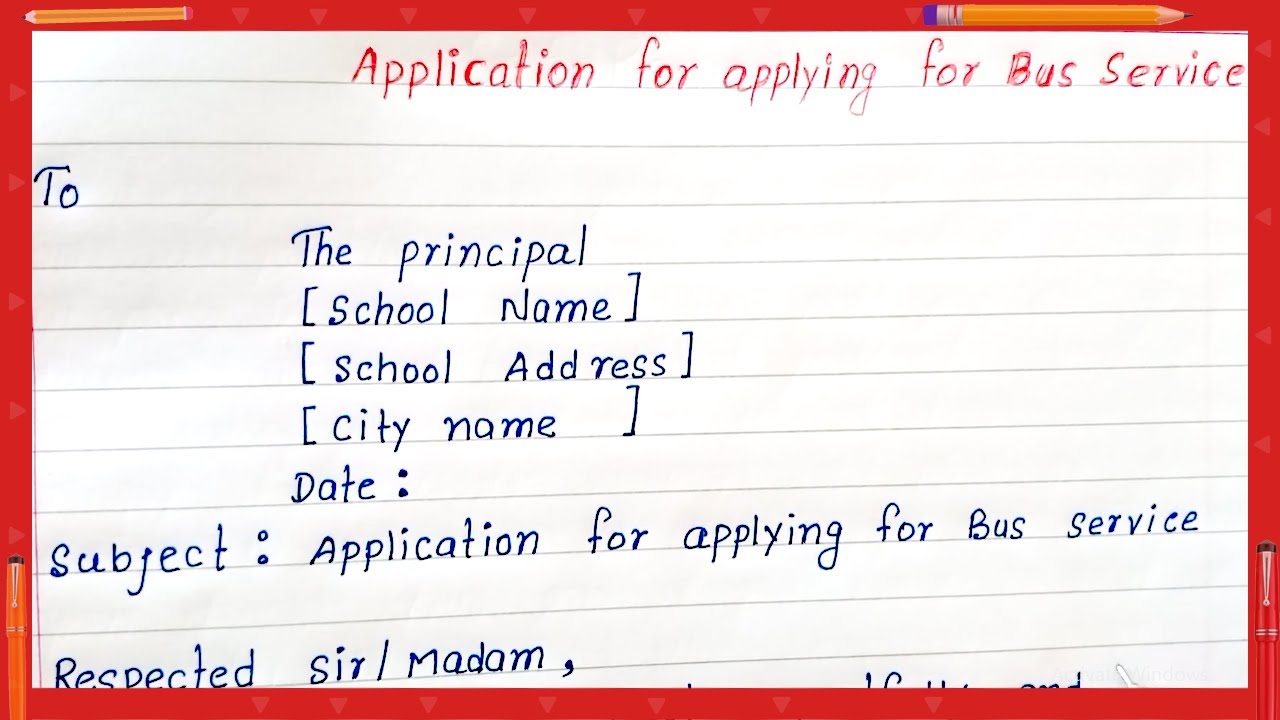 Application for applying for Bus Service
To
The principal
[School Name]
[School Address]
[City name ]
Date :
Subject : Application for applying for Bus service
Respected Sir/Madam,
Activate Windows